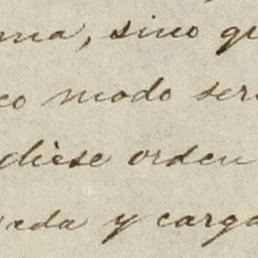 ma, sino q
co modo ser
diese orden
eda y carga